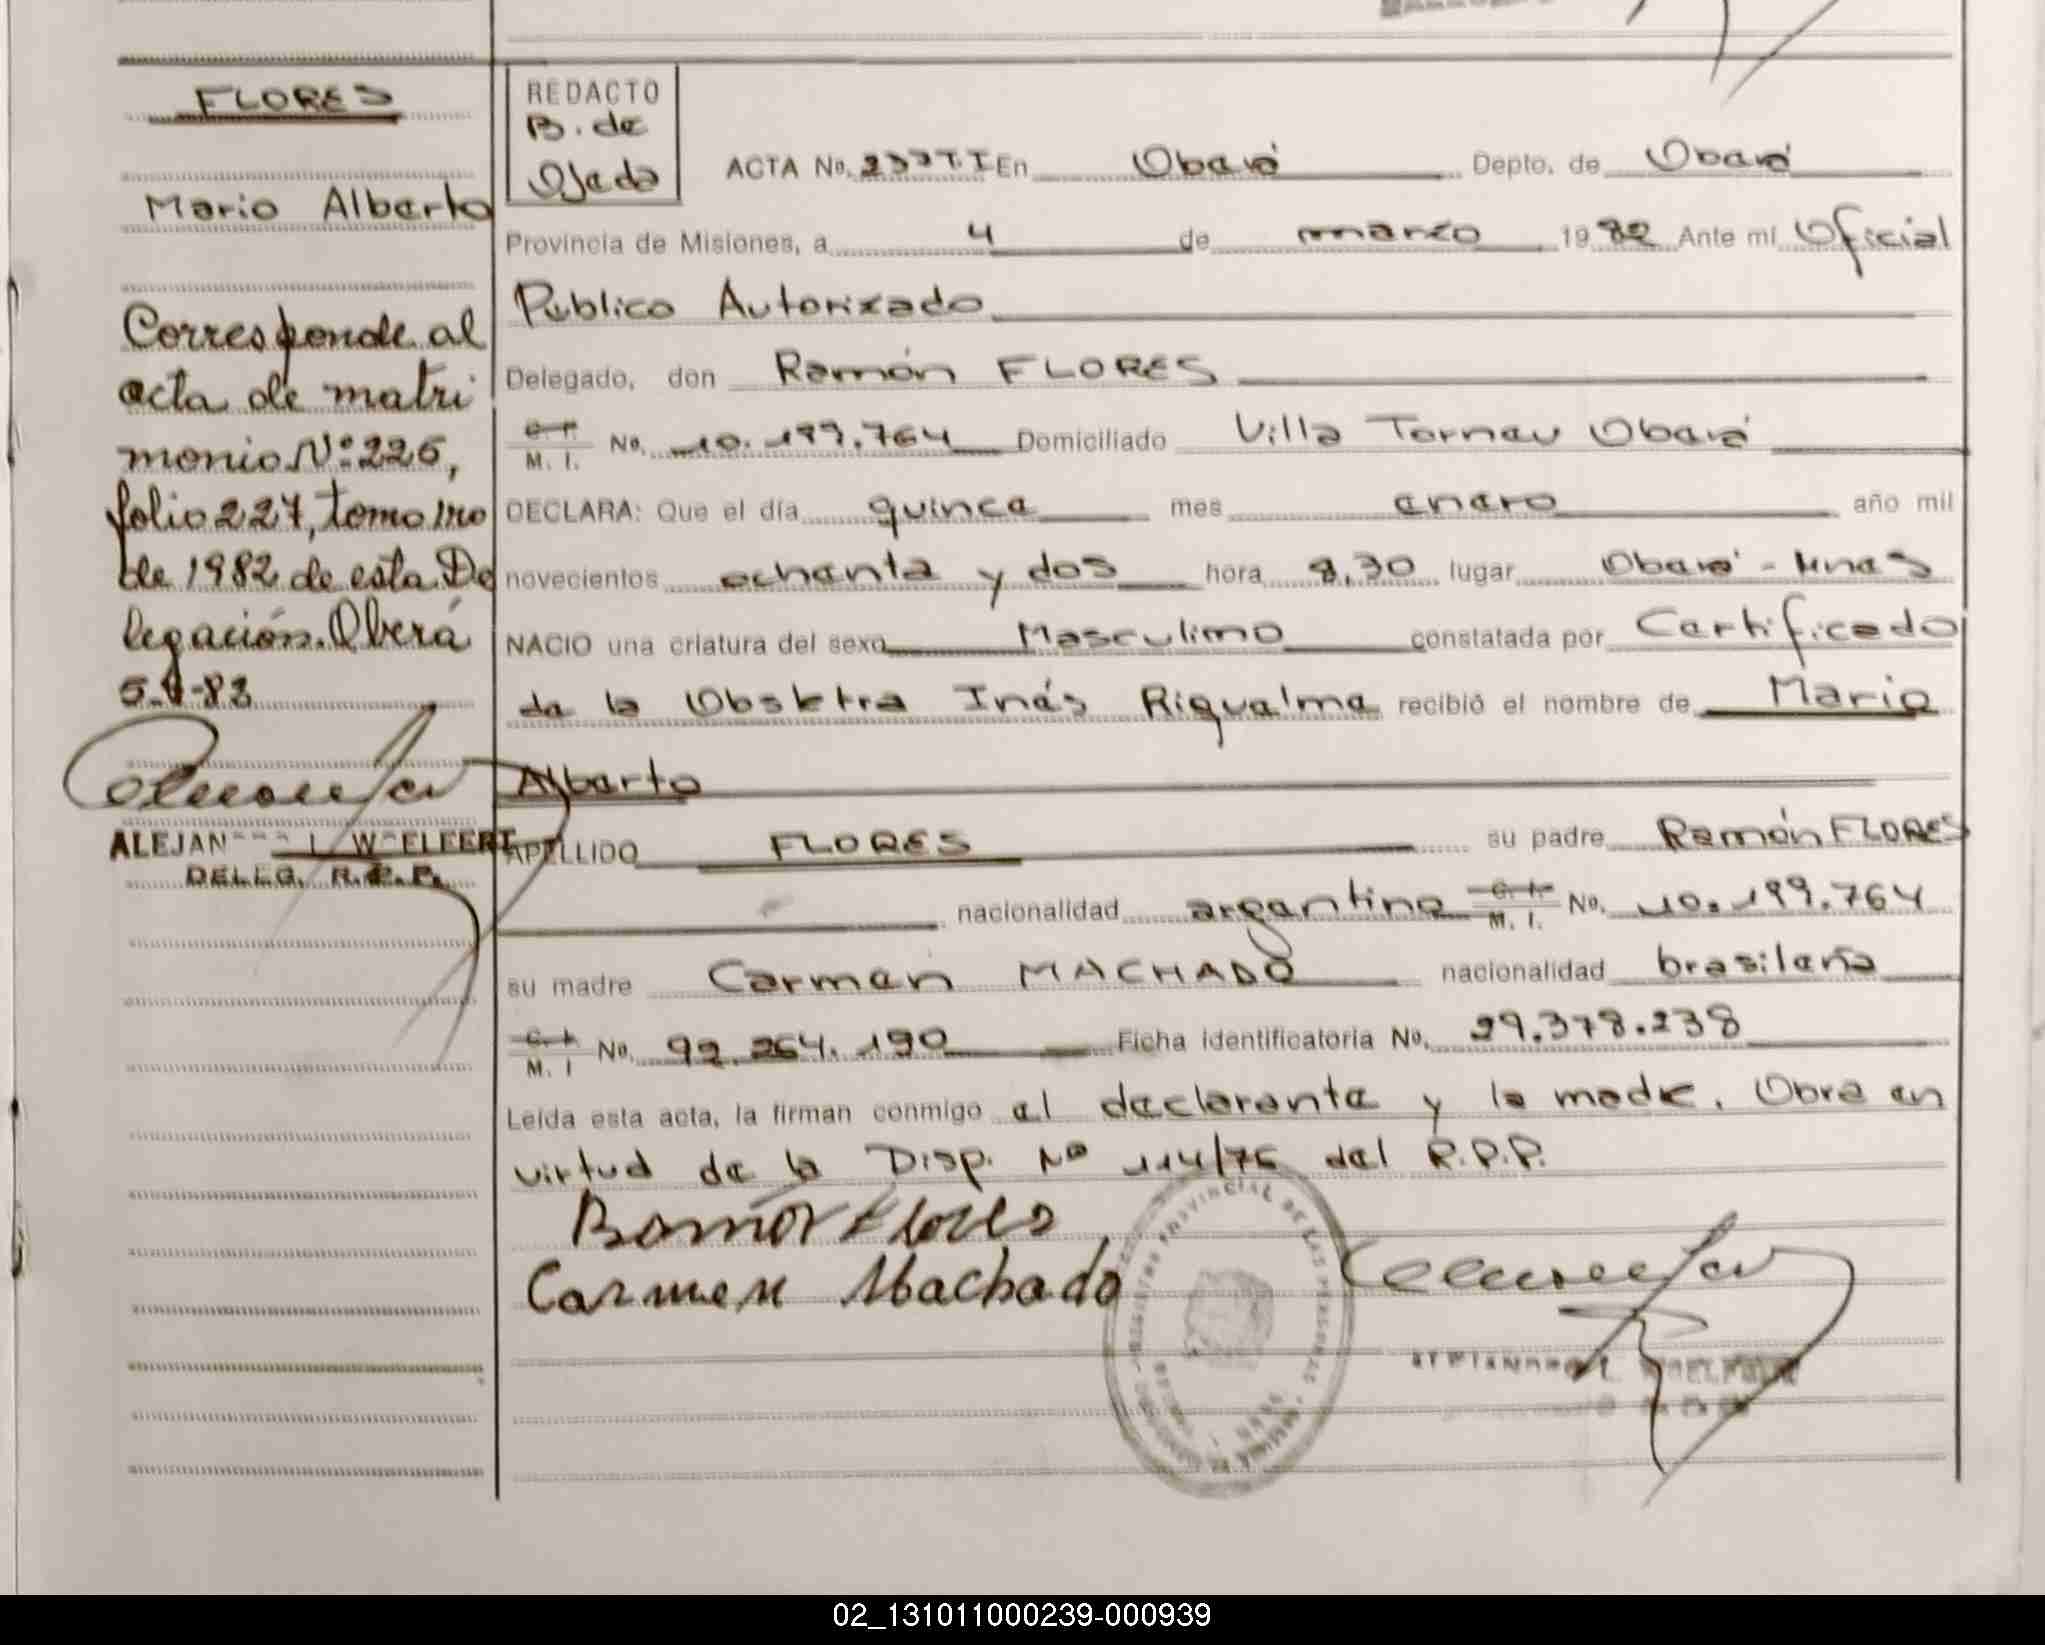 FLORES
Mario Alberto
Corresponde al
acta de matri
monio Nº 226,
folio 227, tomo 1ro
de 1982 de esta De
legación. Oberá
5-V-83
DELEG. R.P.P.
REDACTO
B. de
Ojeda
ACTA No. 237 T. I En Oberá Depto. de Oberá
Provincia de Misiones, a 4 de marzo 1982 Ante mi Oficial
Publico Autorizado
Delegado, don Ramón FLORES
C. I. M. I. No. 10.199.764 Domiciliado Villa Tornau Oberá
DECLARA: Que el día quince mes enero año mil
novecientos ochenta y dos hora 8,30 lugar Oberá - Mnes
NACIO una criatura del sexo Masculino constatada por Certificado
de la Obstetra Inés Riquelme recibió el nombre de Mario
Alberto
APELLIDO FLORES su padre Ramón FLORES
nacionalidad argentino C. I. M. I. No. 10.199.764
su madre Carmen MACHADO nacionalidad brasileña
C. I. M. I No. 92.264.190 Ficha identificatoria No. 29.378.238
Leída esta acta, la firman conmigo el declarante y la madre. Obra en
virtud de la Disp. Nº 114/76 del R.P.P.
Ramón Flores
Carmen Machado
REGISTRO PROVINCIAL DE LAS PERSONAS
02_131011000239-000939